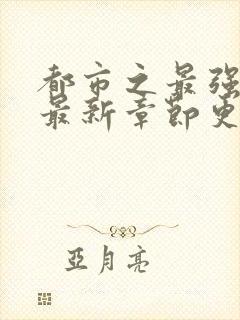 都市之最强
最新章节更
亞月亮